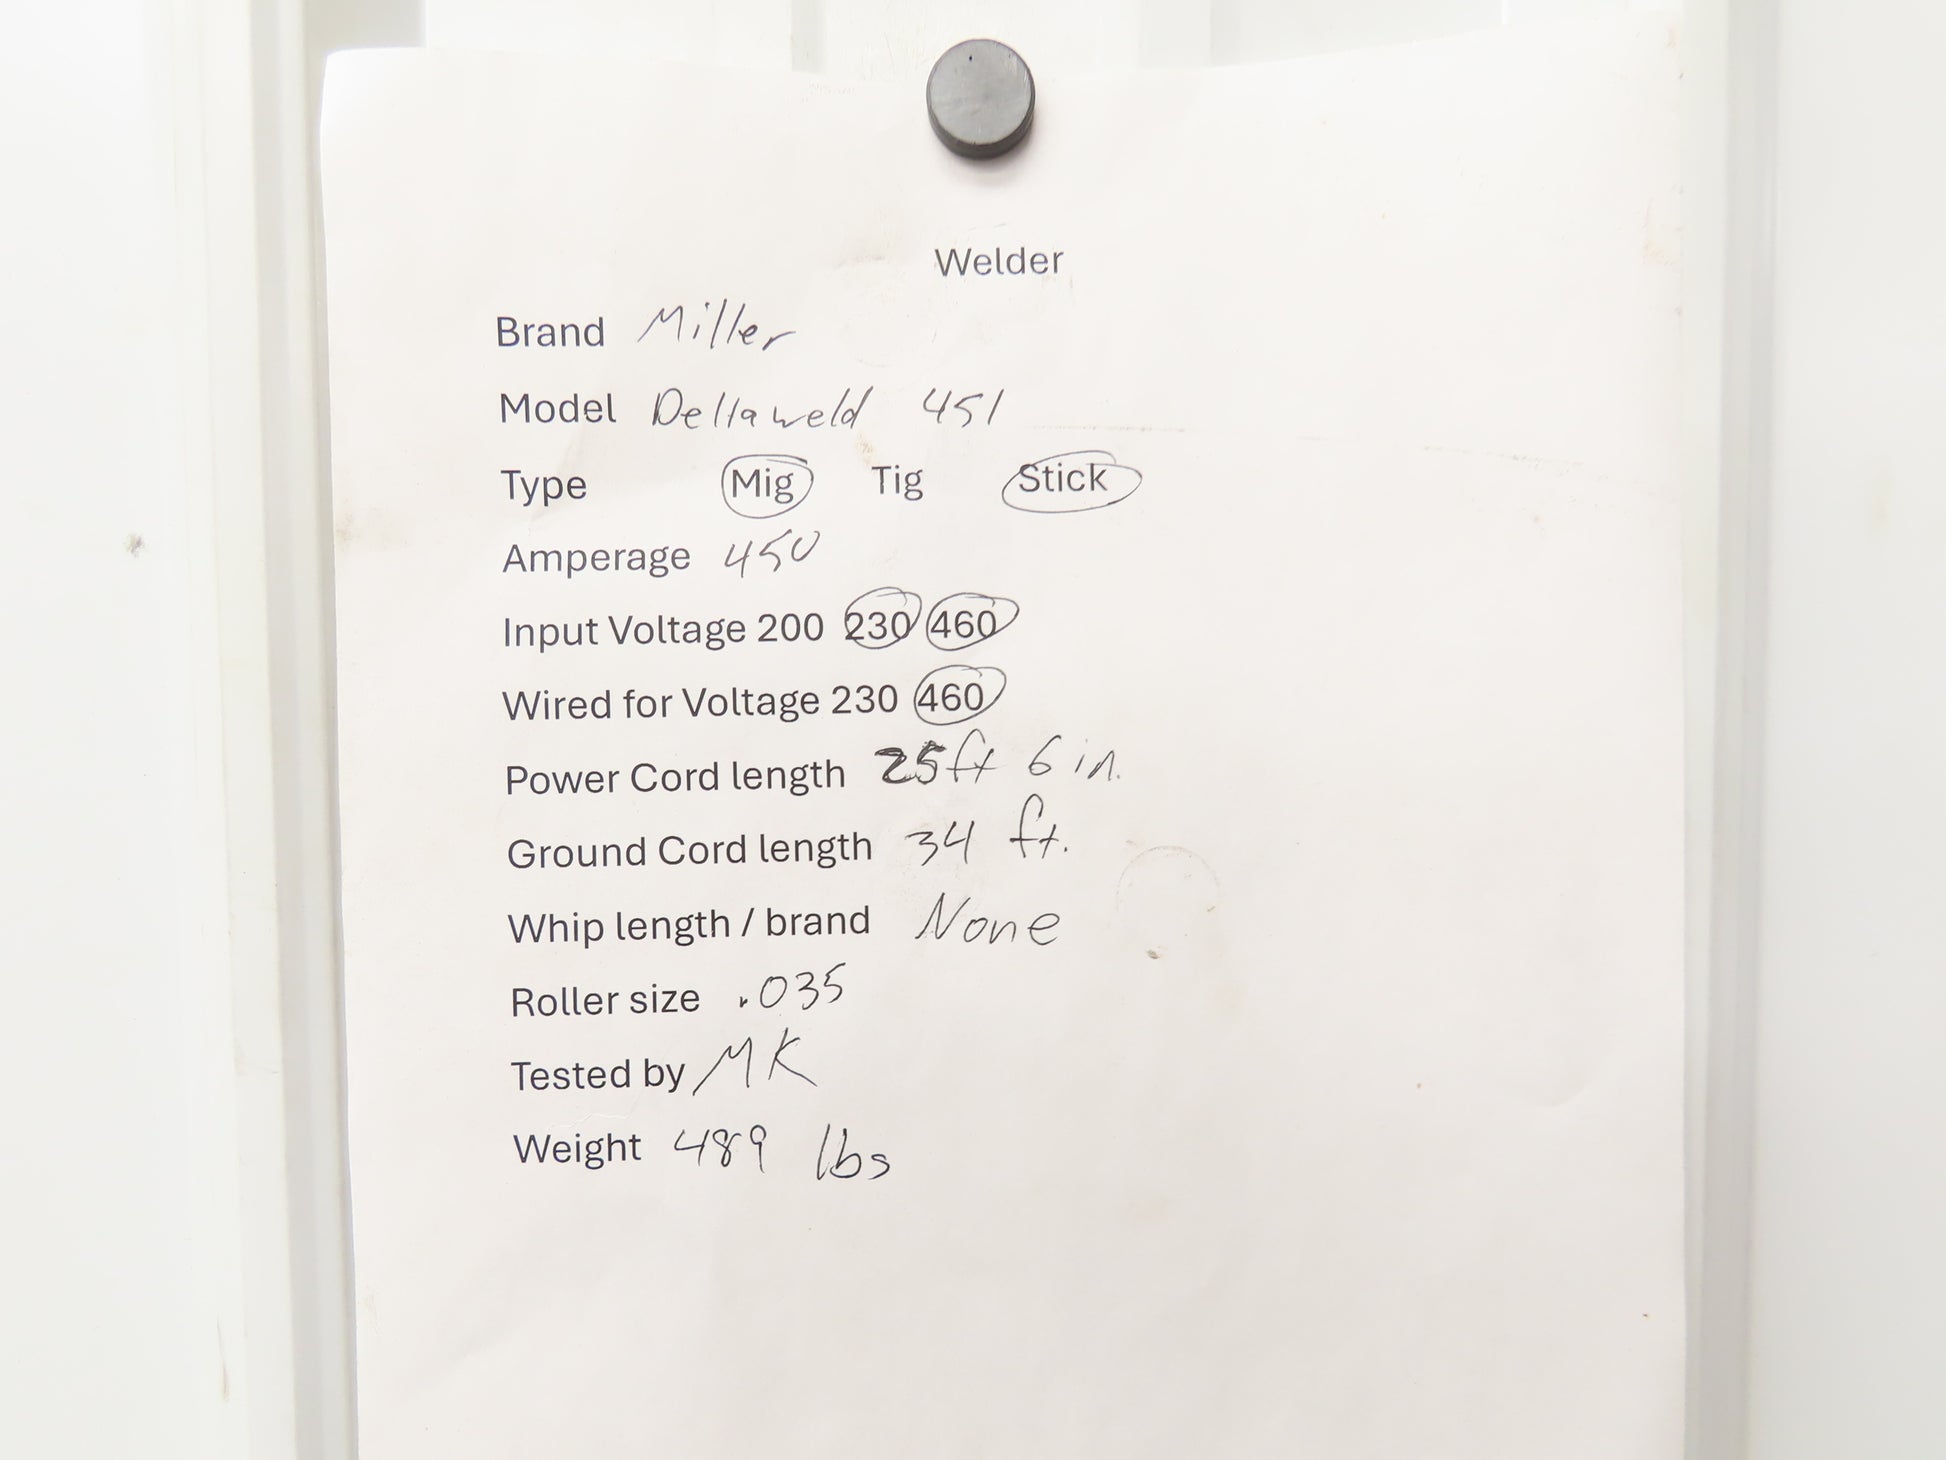 Welder
Brand Miller
Model Deltaweld 451
Type Mig Tig Stick
Amperage 450
Input Voltage 200 230 460
Wired for Voltage 230 460
Power Cord length 25ft 6 in.
Ground Cord length 34 ft.
Whip length / brand None
Roller size .035
Tested by MK
Weight 489 lbs